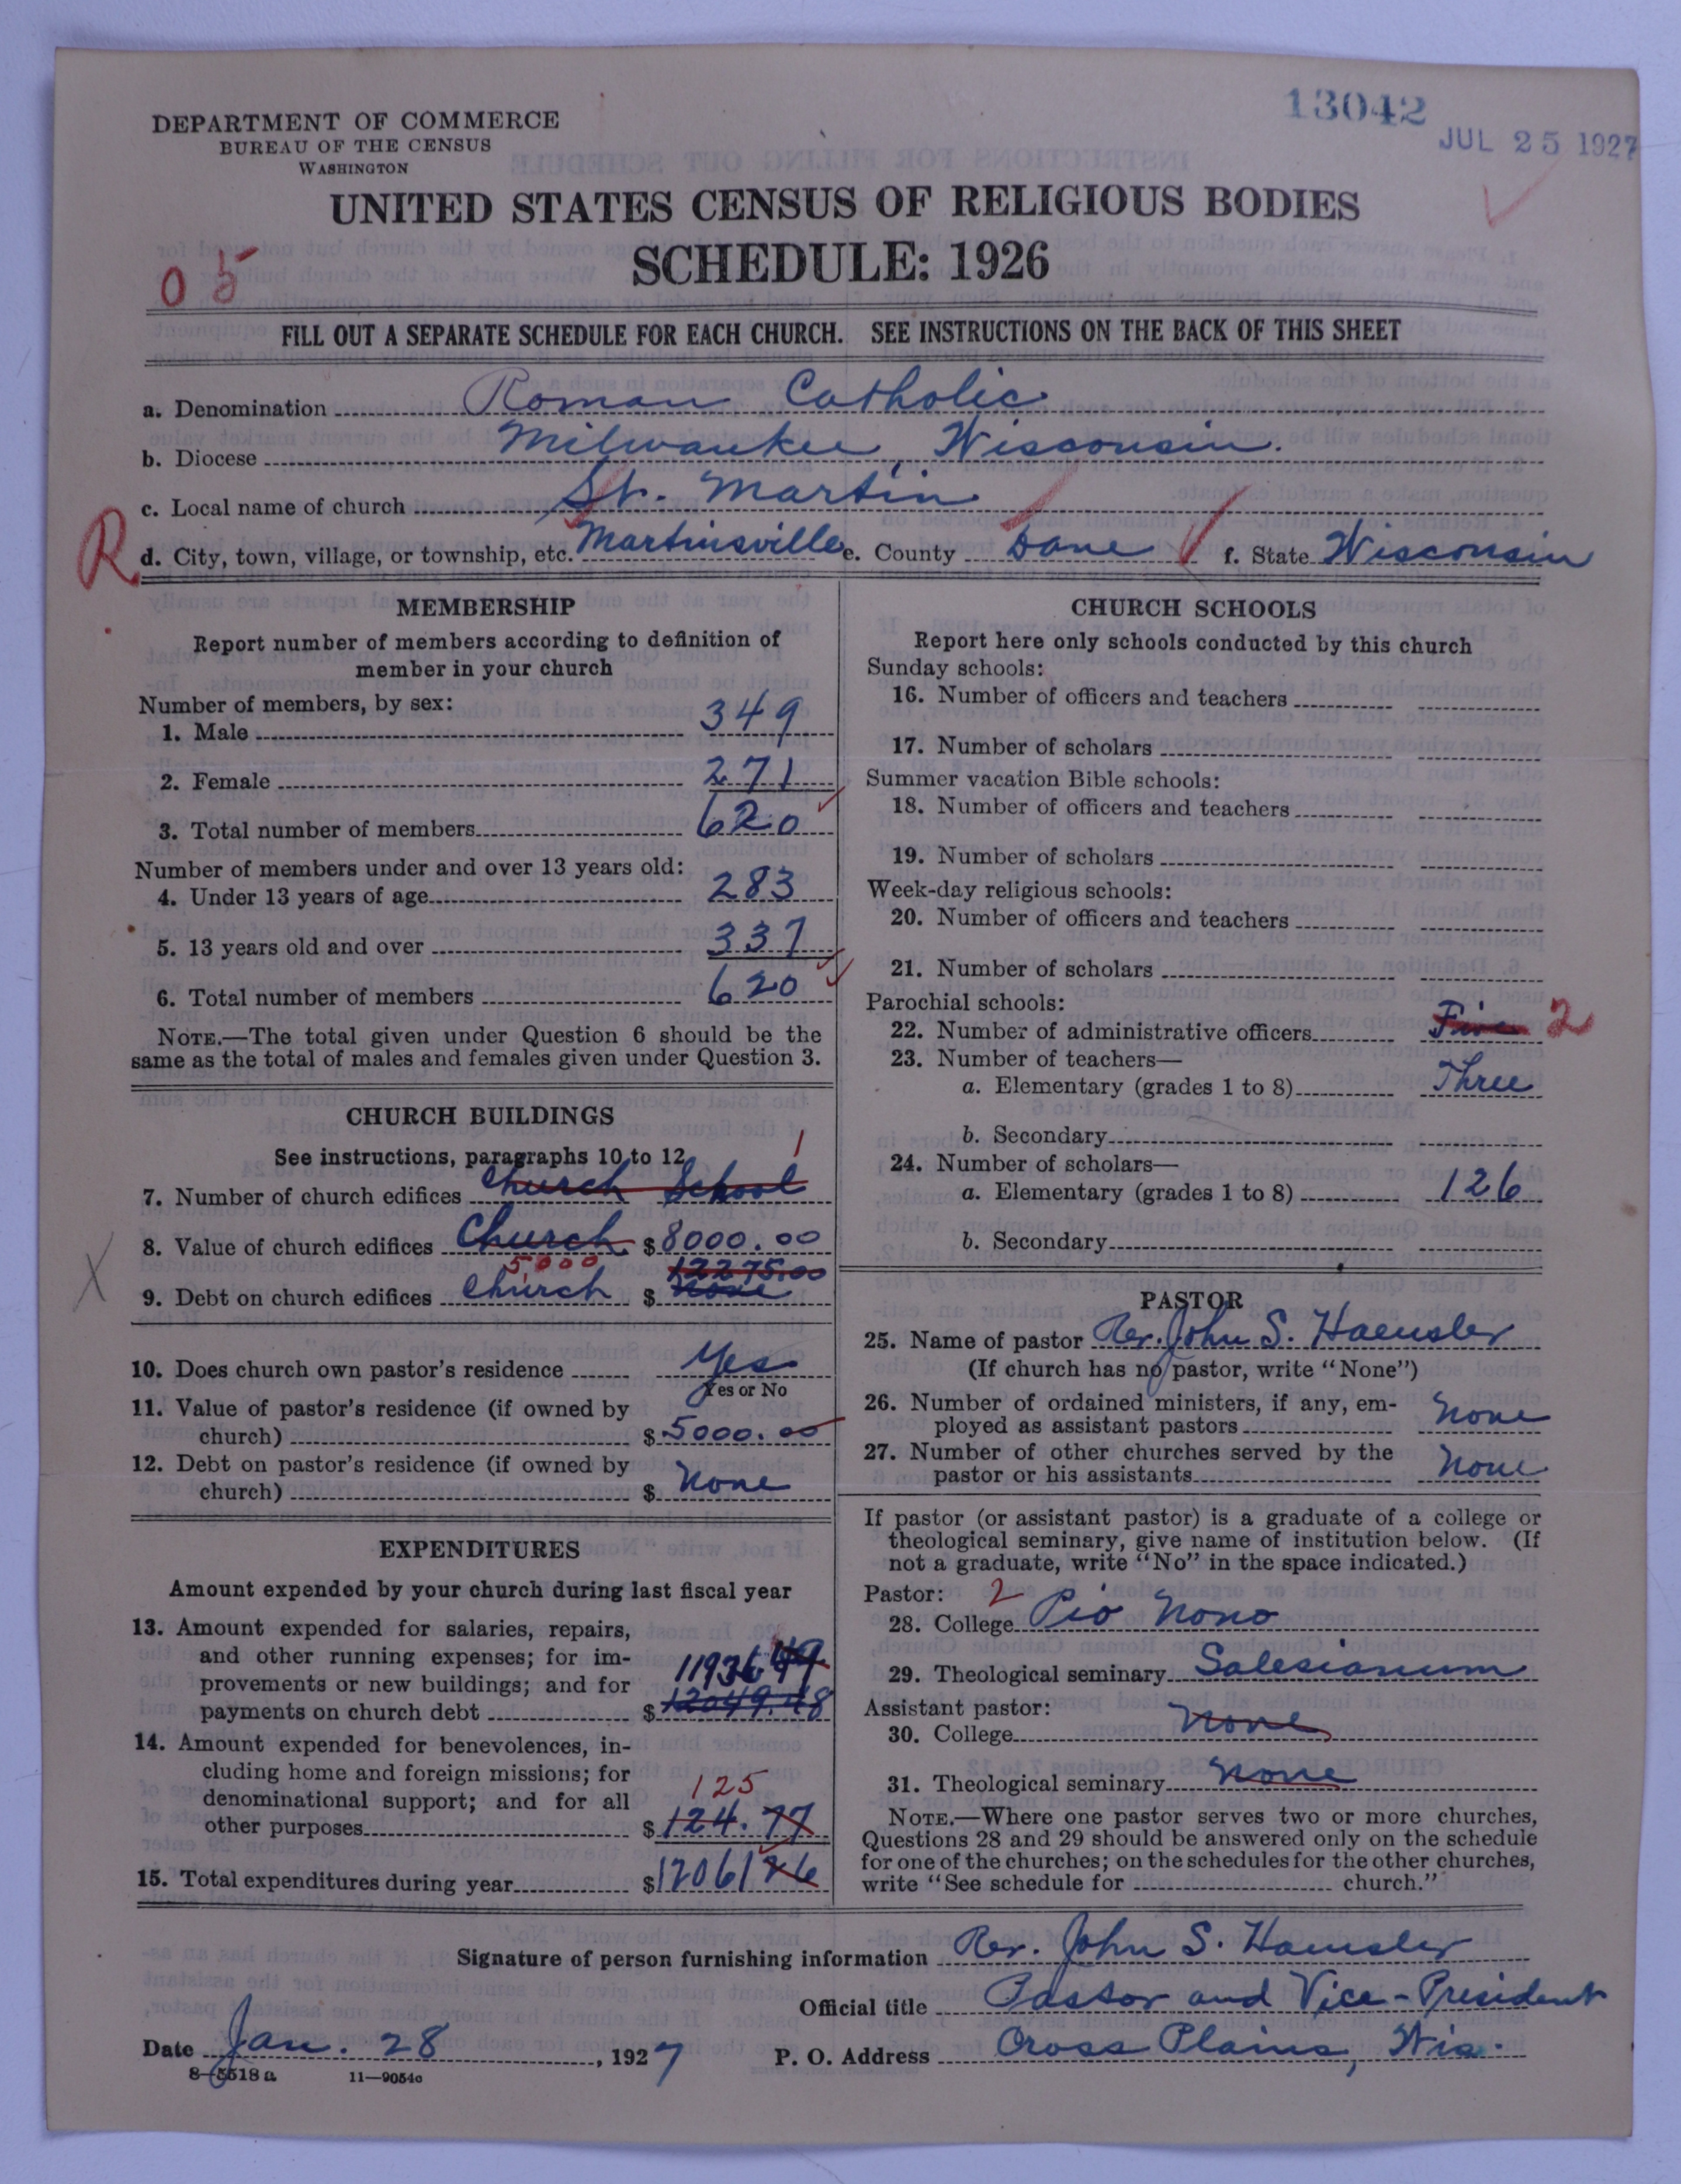 13042
JUL 25 1927
DEPARTMENT OF COMMERCE
BUREAU OF THE CENSUS
WASHINGTON
UNITED STATES CENSUS OF RELIGIOUS BODIES
SCHEDULE: 1926
05
FILL OUT A SEPARATE SCHEDULE FOR EACH CHURCH. SEE INSTRUCTIONS ON THE BACK OF THIS SHEET
a. Denomination Roman Catholic
b. Diocese Milwaukee, Wisconsin.
c. Local name of church St. Martin
R
d. City, town, village, or township, etc. Martinsville e. County Dane f. State Wisconsin
MEMBERSHIP
Report number of members according to definition of
member in your church
Number of members, by sex:
1. Male 349
2. Female 271
3. Total number of members 620
Number of members under and over 13 years old:
4. Under 13 years of age 283
5. 13 years old and over 337
6. Total number of members 620
NOTE.—The total given under Question 6 should be the
same as the total of males and females given under Question 3.
CHURCH BUILDINGS
See instructions, paragraphs 10 to 12
1
7. Number of church edifices Church School
8. Value of church edifices Church $8000.00
5000 12275.00
9. Debt on church edifices Church $ None
10. Does church own pastor's residence Yes
Yes or No
11. Value of pastor's residence (if owned by
church) $5000.00
12. Debt on pastor's residence (if owned by
church) $ None
EXPENDITURES
Amount expended by your church during last fiscal year
13. Amount expended for salaries, repairs,
and other running expenses; for im-
provements or new buildings; and for 11936 49
payments on church debt $12049.48
14. Amount expended for benevolences, in-
cluding home and foreign missions; for
denominational support; and for all 125
other purposes $124.77
15. Total expenditures during year $12061 26
CHURCH SCHOOLS
Report here only schools conducted by this church
Sunday schools:
16. Number of officers and teachers
17. Number of scholars
Summer vacation Bible schools:
18. Number of officers and teachers
19. Number of scholars
Week-day religious schools:
20. Number of officers and teachers
21. Number of scholars
Parochial schools:
22. Number of administrative officers Five 2
23. Number of teachers—
a. Elementary (grades 1 to 8) Three
b. Secondary
24. Number of scholars—
a. Elementary (grades 1 to 8) 126
b. Secondary
PASTOR
25. Name of pastor Rev. John S. Haeusler
(If church has no pastor, write "None")
26. Number of ordained ministers, if any, em-
ployed as assistant pastors None
27. Number of other churches served by the
pastor or his assistants None
If pastor (or assistant pastor) is a graduate of a college or
theological seminary, give name of institution below. (If
not a graduate, write "No" in the space indicated.)
Pastor: 2
28. College Pio Nono
29. Theological seminary Salesianum
Assistant pastor:
30. College None
31. Theological seminary None
NOTE.—Where one pastor serves two or more churches,
Questions 28 and 29 should be answered only on the schedule
for one of the churches; on the schedules for the other churches,
write "See schedule for church."
Signature of person furnishing information Rev. John S. Haeusler
Official title Pastor and Vice-President
Date Jan. 28, 1927 P. O. Address Cross Plains, Wis.
8-5518a 11—9054c